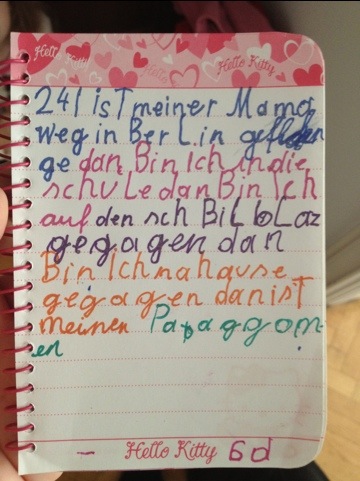 Hello Kitty Hello Kitty Hello Kitty
241 isT meiner Mama
weg in BerLin
ge dan Bin Ich in die
schuLe dan Bin Ich
auf den sch BiLbLaz
gegagen dan
Bin Ich nahause
gegagen dan isT
meinen Papaggom-
en
– Hello Kitty 6d